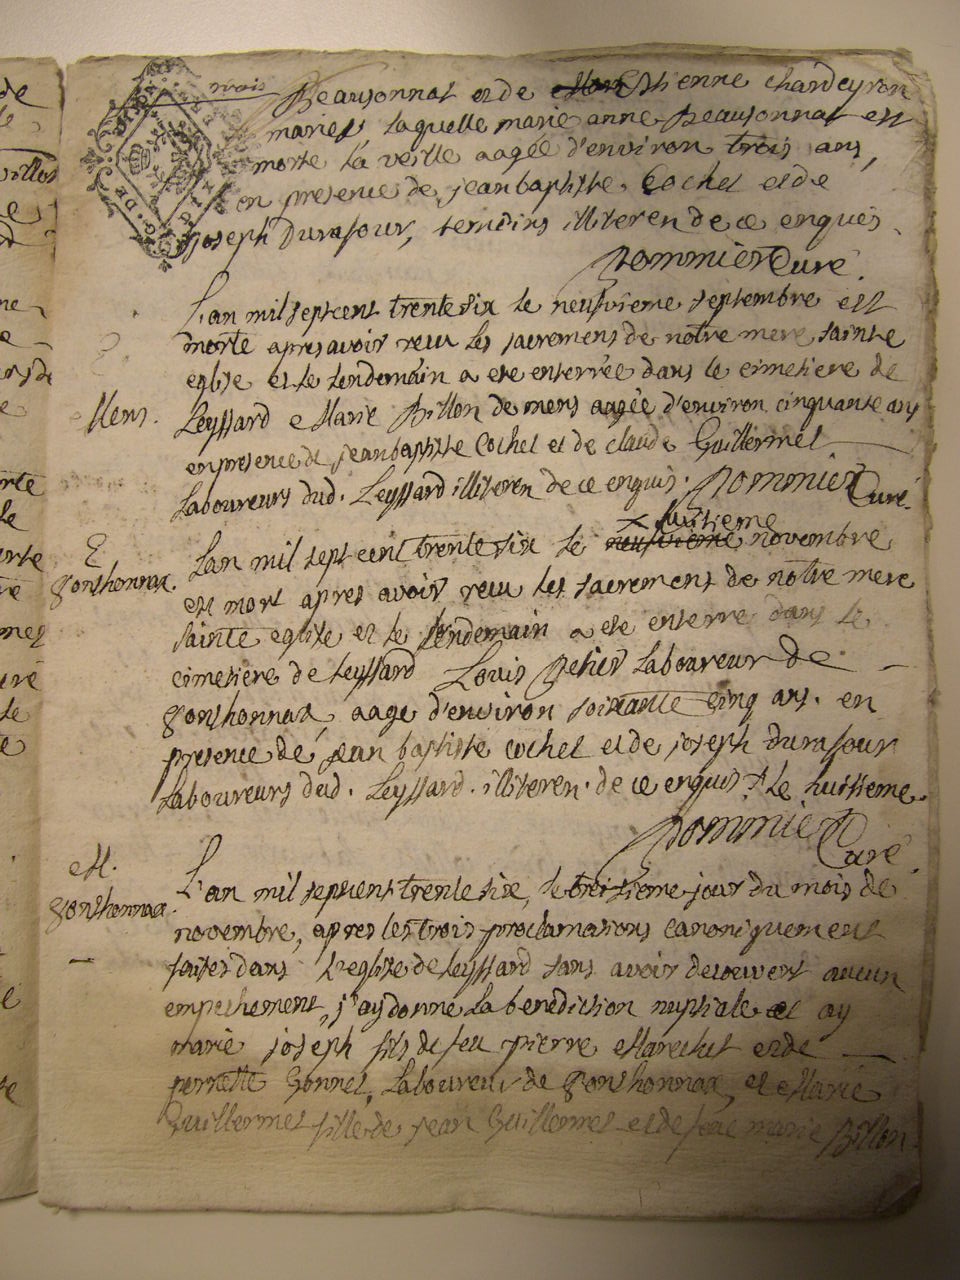 Beausonnat et de Estienne chardeyron
mariés laquelle marie anne Beausonnat est
morte la veille aagée d'environ trois ans,
en presence de jean baptiste Cochet et de
joseph Durafour, temoins illiteren de ce enquis.
Pommier Curé.
L'an mil septcent trente six le neufvieme septembre est
morte apres avoir receu les sacremens de notre mere sainte
eglise et le lendemain a ete enterrée dans le cimetiere de
Mens.
Leyssard Marie Billon de mens aagée d'environ cinquante ans
en presence de jean baptiste Cochet et de claude Guillermet
Laboureurs dud. Leyssard illiteren de ce enquis. Pommier Curé.
x huitieme
Gonthonnax.
Lan mil sept cent trente six le neufvieme novembre
est mort apres avoir receu les sacremens de notre mere
sainte eglise et le lendemain a ete enterre dans le
cimetiere de Leyssard Louis Laboureur de
Gonthonnax, aage d'environ soixante cinq ans. en
presence de jean baptiste cochet et de joseph durafour
Laboureurs dud. Leyssard. illiteren. de ce enquis x Le huitieme.
Pommier
Curé
M.
Gonthonnax.
L'an mil septcent trente six, le treizieme jour du mois de
novembre, apres les trois proclamations canoniquement
faites dans l'eglise de Leyssard sans avoir decouvert aucun
empechement, j'ay donné La benediction nuptiale et ay
marié joseph fils de feu pierre Marechet et de
pernette Gonnet, Laboureur de Gonthonnax, et Marie
Guillermet fille de jean Guillermet et de feue marie Billon